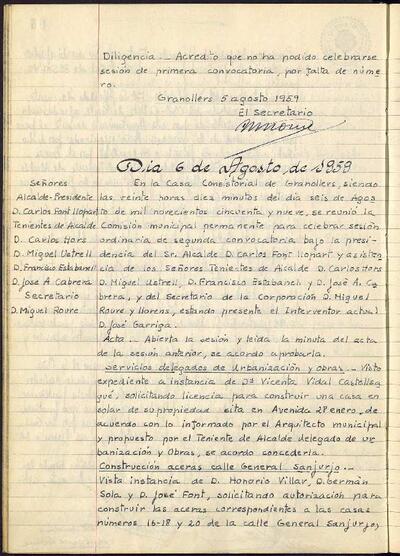 Diligencia.- Acredito que no ha podido celebrarse
sesión de primera convocatoria, por falta de núme
ro.
Granollers 5 agosto 1959
El Secretario
Dia 6 de Agosto de 1959
Señores
Alcalde-Presidente
D. Carlos Font llopart
Tenientes de Alcalde
D. Carlos Hors
D. Miguel Ustrell
D. Francisco Estabanell
D. Jose A. Cabrera
Secretario
D. Miguel Roure
En la Casa Consistorial de Granollers, siendo
las veinte horas diez minutos del día seis de Agos
to de mil novecientos cincuenta y nueve, se reunió la
Comisión municipal permanente para celebrar sesión
ordinaria de segunda convocatoria bajo la presi-
dencia del Sr. Alcalde D. Carlos Font llopart y asisten
cia de los Señores Tenientes de Alcalde D. Carlos Hors
D. Miguel Ustrell, D. Francisco Estabanell y D. José A. Ca
brera, y del Secretario de la Corporación D. Miguel
Roure y llorens, estando presente el Interventor actual
D. José Garriga.
Acta.- Abierta la sesión y leída la minuta del acta
de la sesión anterior, se acordo aprobarla.
Servicios delegados de Urbanización y obras.- Visto
expediente a instancia de Dª Vicenta Vidal Castellsa
gué, solicitando licencia para construir una casa en
solar de su propiedad sita en Avenida 28 enero, de
acuerdo con lo informado por el Arquitecto municipal
y propuesto por el Teniente de Alcalde delegado de ur
banización y Obras, se acordo concederla.
Construcción aceras calle General Sanjurjo.-
Vista instancia de D. Honorio Villar, D. Germán
Sola y D. José Font, solicitando autorización para
construir las aceras correspondientes a las casas
números 16-18 y 20 de la calle General Sanjurjo,